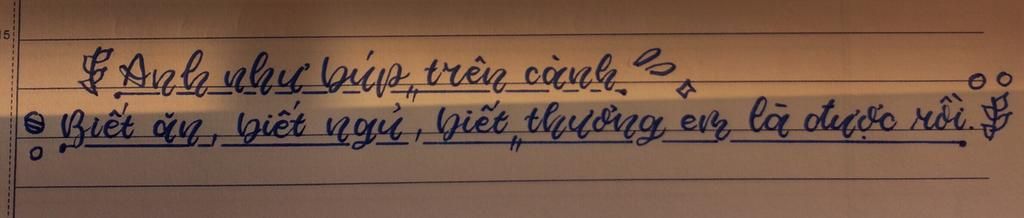 15
Anh như búp trên cành
Biết ăn, biết ngủ, biết thương em là được rồi.